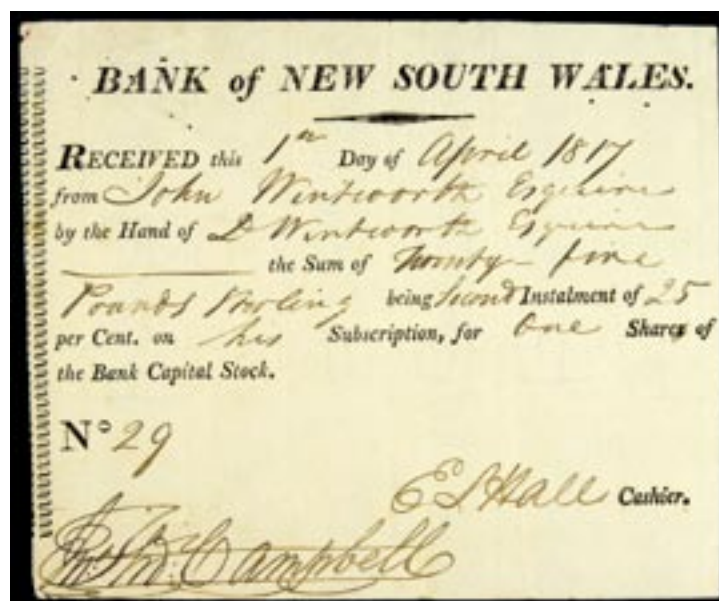 BANK of NEW SOUTH WALES.
RECEIVED this 1st Day of April 1817
from John Wentworth Esquire
by the Hand of D Wentworth Esquire
the Sum of Twenty five
Pounds Sterling being Second Instalment of 25
per Cent. on his Subscription, for One Share of
the Bank Capital Stock.
No 29
E S Hall Cashier.
Campbell